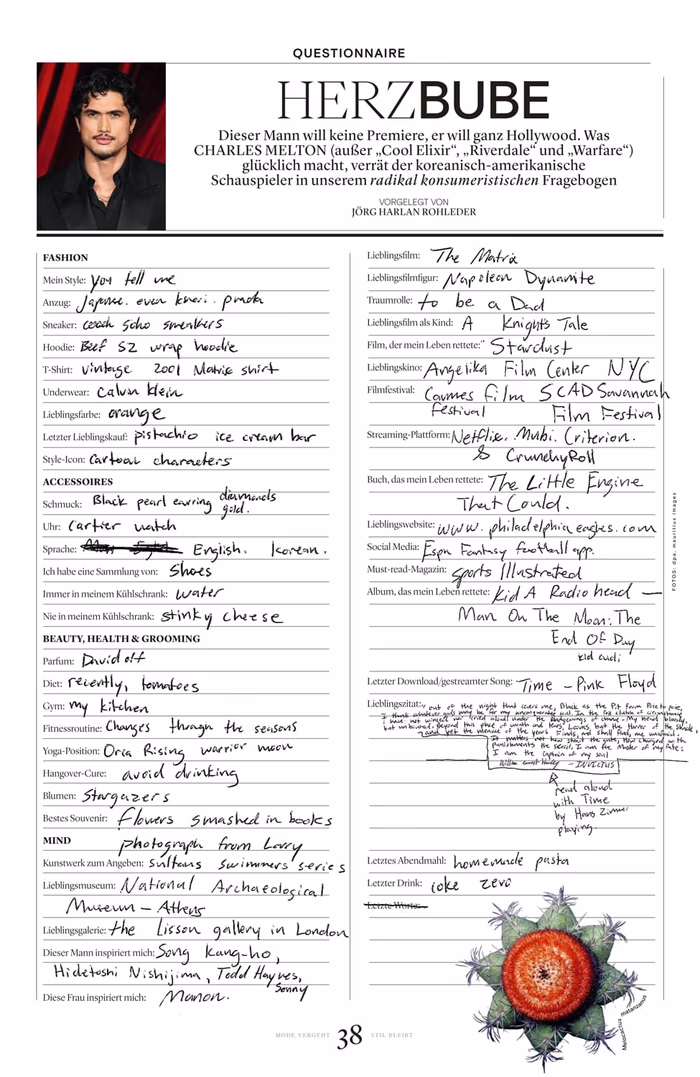 QUESTIONNAIRE
HERZBUBE
Dieser Mann will keine Premiere, er will ganz Hollywood. Was
CHARLES MELTON (außer „Cool Elixir“, „Riverdale“ und „Warfare“)
glücklich macht, verrät der koreanisch-amerikanische
Schauspieler in unserem radikal konsumeristischen Fragebogen
VORGELEGT VON
JÖRG HARLAN ROHLEDER
FASHION
Mein Style: you tell me
Anzug: Japanese. even knori. prada
Sneaker: coach soho sneakers
Hoodie: Beef S2 wrap hoodie
T-Shirt: vintage 2001 Matrix shirt
Underwear: Calvin Klein
Lieblingsfarbe: orange
Letzter Lieblingskauf: pistachio ice cream bar
Style-Icon: Cartoon characters
ACCESSOIRES
Schmuck: Black pearl earring diamonds
gold.
Uhr: Cartier watch
Sprache: English. Korean.
Ich habe eine Sammlung von: Shoes
Immer in meinem Kühlschrank: water
Nie in meinem Kühlschrank: stinky cheese
BEAUTY, HEALTH & GROOMING
Parfum: Davidoff
Diet: recently, tomatoes
Gym: my kitchen
Fitnessroutine: Changes through the seasons
Yoga-Position: Orca Rising warrior moon
Hangover-Cure: avoid drinking
Blumen: Stargazers
Bestes Souvenir: flowers smashed in books
MIND
photograph from Larry
Kunstwerk zum Angeben: sultans swimmers series
Lieblingsmuseum: National Archaeological
Museum – Athens
Lieblingsgalerie: the Lisson gallery in London
Dieser Mann inspiriert mich: Song Kang-ho,
Hidetoshi Nishijima, Todd Haynes,
Sonny
Diese Frau inspiriert mich: Manon.
Lieblingsfilm: The Matrix
Lieblingsfilmfigur: Napoleon Dynamite
Traumrolle: to be a Dad
Lieblingsfilm als Kind: A Knight's Tale
Film, der mein Leben rettete: Stardust
Lieblingskino: Angelika Film Center NYC
Filmfestival: Cannes Film SCAD Savannah
festival Film Festival
Streaming-Plattform: Netflix. Mubi. Criterion.
& CrunchyRoll
Buch, das mein Leben rettete: The Little Engine
That Could.
Lieblingswebsite: www.philadelphiaeagles.com
Social Media: Espn Fantasy football app.
Must-read-Magazin: Sports Illustrated
Album, das mein Leben rettete: Kid A Radiohead —
Man On The Moon: The
End Of Day
kid cudi
Letzter Download/gestreamter Song: Time – Pink Floyd
Lieblingszitat: out of the night that covers me, Black as the Pit from Pole to pole,
I thank whatever gods may be for my unconquerable soul. In the fell clutch of circumstance
I have not winced nor cried aloud under the bludgeonings of chance – My head bloody,
but unbowed. Beyond this place of wrath and tears, Looms but the Horror of the shade,
and yet the menace of the years Finds, and shall find, me unafraid.
It matters not how strait the gate, How charged with
punishments the scroll, I am the Master of my fate:
I am the captain of my soul
William Ernest Henley – INVICTUS
read aloud
with Time
by Hans Zimmer
playing.
Letztes Abendmahl: homemade pasta
Letzter Drink: coke zero
Letzte Worte:
Melocactus matanzanus
FOTOS: dpa, mauritius images
MODE VERGEHT 38 STIL BLEIBT